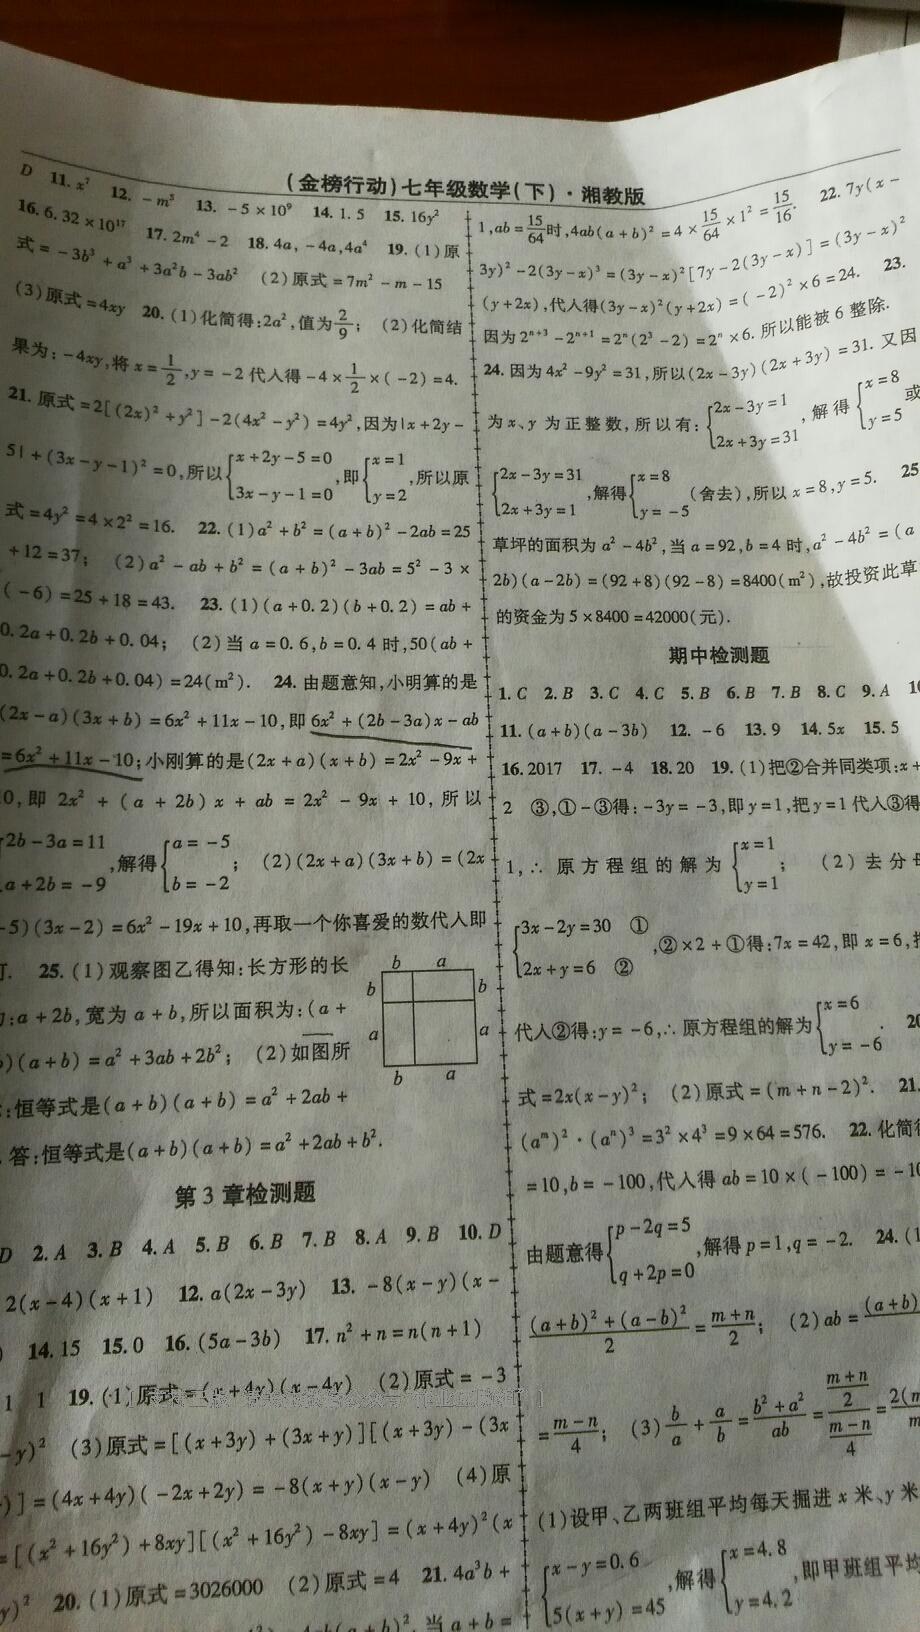 (金榜行动)七年级数学(下)·湘教版
D 11. x⁷ 12. -m⁵ 13. -5×10⁹ 14. 1.5 15. 16y²
16. 6.32×10¹⁷ 17. 2m⁴-2 18. 4a, -4a, 4a⁴ 19. (1)原
式=-3b³+a³+3a²b-3ab² (2)原式=7m²-m-15
(3)原式=4xy 20. (1)化简得:2a²,值为2/9; (2)化简结
果为:-4xy,将x=1/2,y=-2代人得-4×1/2×(-2)=4.
21. 原式=2[(2x)²+y²]-2(4x²-y²)=4y²,因为|x+2y-
5|+(3x-y-1)²=0,所以{x+2y-5=0 3x-y-1=0,即{x=1 y=2,所以原
式=4y²=4×2²=16. 22. (1)a²+b²=(a+b)²-2ab=25
+12=37; (2)a²-ab+b²=(a+b)²-3ab=5²-3×
(-6)=25+18=43. 23. (1)(a+0.2)(b+0.2)=ab+
0.2a+0.2b+0.04; (2)当a=0.6,b=0.4时,50(ab+
0.2a+0.2b+0.04)=24(m²). 24. 由题意知,小明算的是
(2x-a)(3x+b)=6x²+11x-10,即6x²+(2b-3a)x-ab
=6x²+11x-10;小刚算的是(2x+a)(x+b)=2x²-9x+
0,即2x²+(a+2b)x+ab=2x²-9x+10,所以
2b-3a=11 a+2b=-9,解得{a=-5 b=-2; (2)(2x+a)(3x+b)=(2x
-5)(3x-2)=6x²-19x+10,再取一个你喜爱的数代人即
25. (1)观察图乙得知:长方形的长
:a+2b,宽为a+b,所以面积为:(a+
)(a+b)=a²+3ab+2b²; (2)如图所
:恒等式是(a+b)(a+b)=a²+2ab+
.答:恒等式是(a+b)(a+b)=a²+2ab+b².
b a
b b
a a
b a
第3章检测题
D 2. A 3. B 4. A 5. B 6. B 7. B 8. A 9. B 10. D
2(x-4)(x+1) 12. a(2x-3y) 13. -8(x-y)(x-
) 14. 15 15. 0 16. (5a-3b) 17. n²+n=n(n+1)
1 1 19. (1)原式=(x+4y)(x-4y) (2)原式=-3
-y)² (3)原式=[(x+3y)+(3x+y)][(x+3y)-(3x
)]=(4x+4y)(-2x+2y)=-8(x+y)(x-y) (4)原
=[(x²+16y²)+8xy][(x²+16y²)-8xy]=(x+4y)²(x
y)² 20. (1)原式=3026000 (2)原式=4 21. 4a³b+
(a+b)².当a+b=
1,ab=15/64时,4ab(a+b)²=4×15/64×1²=15/16. 22. 7y(x-
3y)²-2(3y-x)³=(3y-x)²[7y-2(3y-x)]=(3y-x)²
(y+2x),代人得(3y-x)²(y+2x)=(-2)²×6=24. 23.
因为2ⁿ⁺³-2ⁿ⁺¹=2ⁿ(2³-2)=2ⁿ×6.所以能被6整除.
24. 因为4x²-9y²=31,所以(2x-3y)(2x+3y)=31.又因
为x、y为正整数,所以有:{2x-3y=1 2x+3y=31,解得{x=8 y=5或
{2x-3y=31 2x+3y=1,解得{x=8 y=-5(舍去),所以x=8,y=5. 25
草坪的面积为a²-4b²,当a=92,b=4时,a²-4b²=(a
2b)(a-2b)=(92+8)(92-8)=8400(m²),故投资此草
的资金为5×8400=42000(元).
期中检测题
1. C 2. B 3. C 4. C 5. B 6. B 7. B 8. C 9. A 10
11. (a+b)(a-3b) 12. -6 13. 9 14. 5x 15. 5
16. 2017 17. -4 18. 20 19. (1)把②合并同类项:x+
2 ③,①-③得:-3y=-3,即y=1,把y=1代人③得
1,∴原方程组的解为{x=1 y=1; (2)去分母
{3x-2y=30 ① 2x+y=6 ②,②×2+①得:7x=42,即x=6,
代人②得:y=-6,∴原方程组的解为{x=6 y=-6. 20
式=2x(x-y)²; (2)原式=(m+n-2)². 21.
(aᵐ)²·(aⁿ)³=3²×4³=9×64=576. 22. 化简
=10,b=-100,代人得ab=10×(-100)=-10
由题意得{p-2q=5 q+2p=0,解得p=1,q=-2. 24. (1
(a+b)²+(a-b)²/2=m+n/2; (2)ab=(a+b)
=m-n/4; (3)b/a+a/b=b²+a²/ab=(m+n/2)/(m-n/4)=2(m
(1)设甲、乙两班组平均每天掘进x米、y米
{x-y=0.6 5(x+y)=45,解得{x=4.8 y=4.2,即甲班组平均